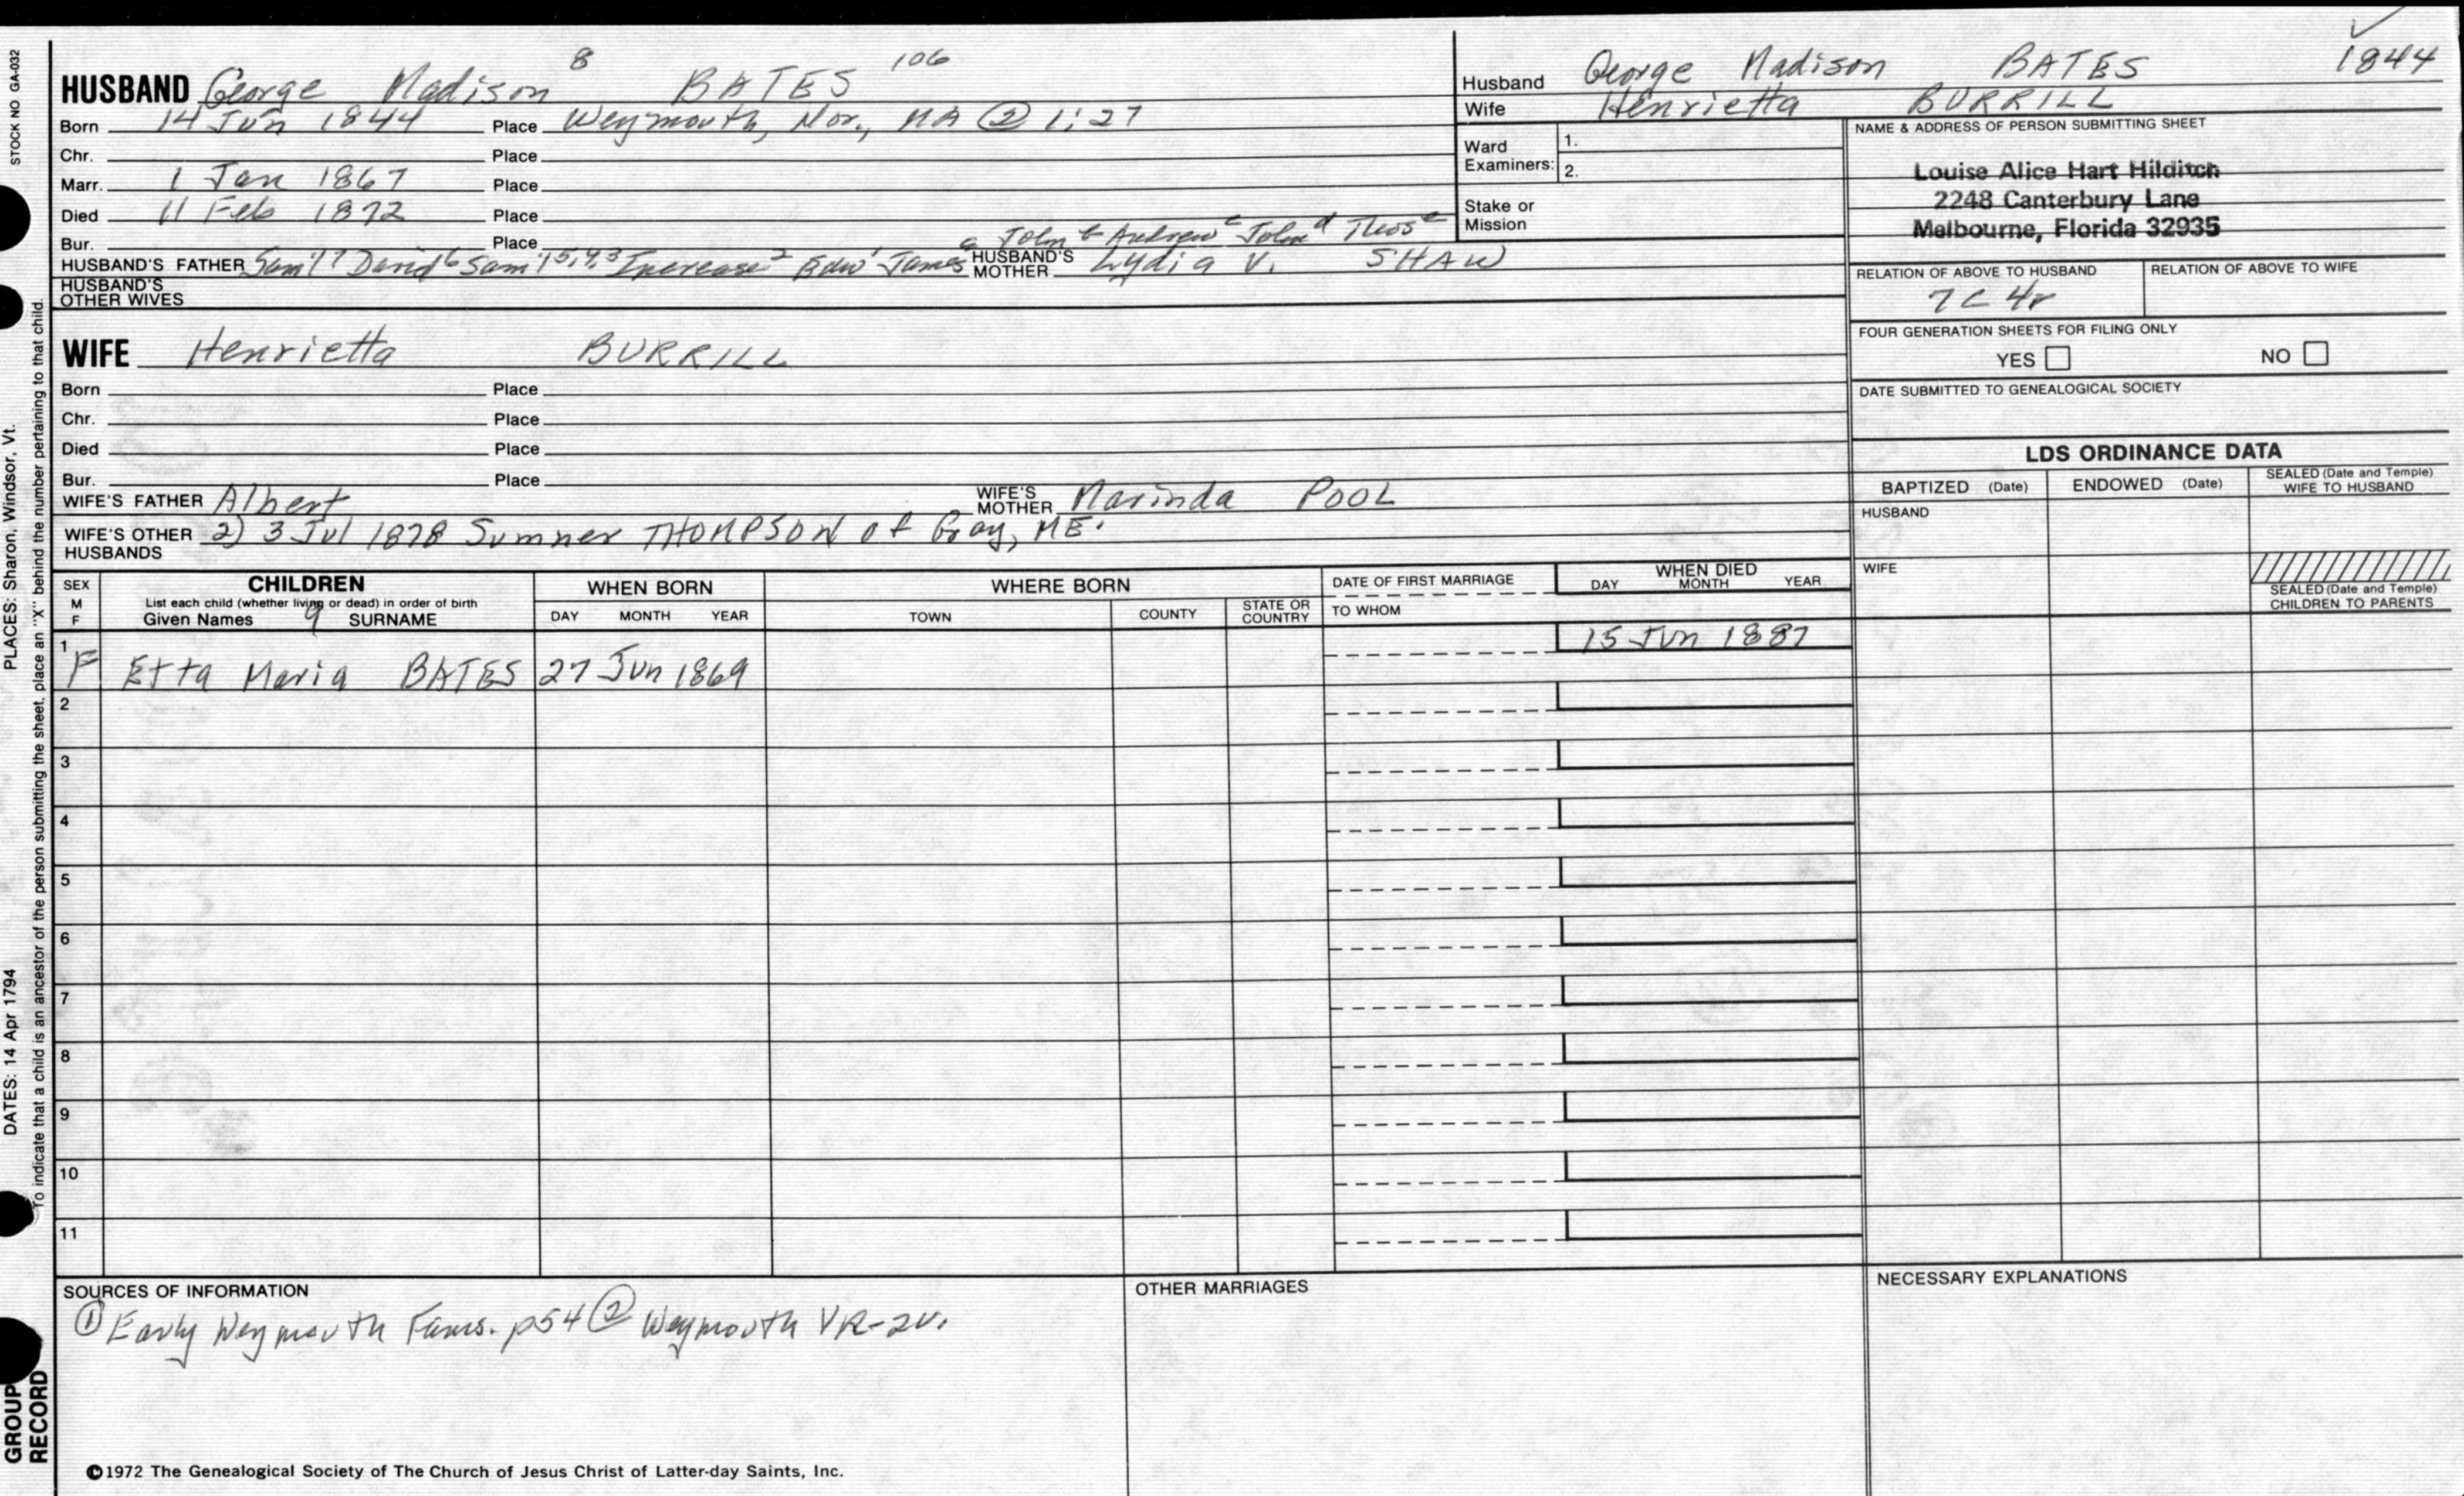 STOCK NO GA-032
PLACES: Sharon, Windsor, Vt.
DATES: 14 Apr 1794
To indicate that a child is an ancestor of the person submitting the sheet, place an "X" behind the number pertaining to that child.
GROUP
RECORD
HUSBAND George Madison 8 BATES 106
Born 14 Jun 1844 Place Weymouth, Nor., MA @ 1:27
Chr. Place
Marr. 1 Jan 1867 Place
Died 11 Feb 1872 Place
Bur. Place
HUSBAND'S FATHER Sam'l 7 David 6 Sam'l 5,4,3 Increase 2 Edw' James
HUSBAND'S MOTHER a John b Andrew c John d Thos e Lydia V. SHAW
HUSBAND'S OTHER WIVES
WIFE Henrietta BURRILL
Born Place
Chr. Place
Died Place
Bur. Place
WIFE'S FATHER Albert WIFE'S MOTHER Marinda POOL
WIFE'S OTHER HUSBANDS 2) 3 Jul 1878 Sumner THOMPSON of Gray, ME.
Husband George Madison BATES 1844
Wife Henrietta BURRILL
Ward Examiners: 1.
2.
Stake or Mission
NAME & ADDRESS OF PERSON SUBMITTING SHEET
Louise Alice Hart Hilditch
2248 Canterbury Lane
Melbourne, Florida 32935
RELATION OF ABOVE TO HUSBAND RELATION OF ABOVE TO WIFE
7C 4r
FOUR GENERATION SHEETS FOR FILING ONLY
YES NO
DATE SUBMITTED TO GENEALOGICAL SOCIETY
LDS ORDINANCE DATA
BAPTIZED (Date) ENDOWED (Date) SEALED (Date and Temple) WIFE TO HUSBAND
HUSBAND
WIFE
SEALED (Date and Temple) CHILDREN TO PARENTS
SEX M F
CHILDREN
List each child (whether living or dead) in order of birth
Given Names 9 SURNAME
WHEN BORN
DAY MONTH YEAR
WHERE BORN
TOWN COUNTY STATE OR COUNTRY
DATE OF FIRST MARRIAGE
TO WHOM
WHEN DIED
DAY MONTH YEAR
1 F Etta Maria BATES 27 Jun 1869 15 Jun 1887
2
3
4
5
6
7
8
9
10
11
SOURCES OF INFORMATION
① Early Weymouth Fams. p54 ② Weymouth VR-2v.
OTHER MARRIAGES
NECESSARY EXPLANATIONS
©1972 The Genealogical Society of The Church of Jesus Christ of Latter-day Saints, Inc.